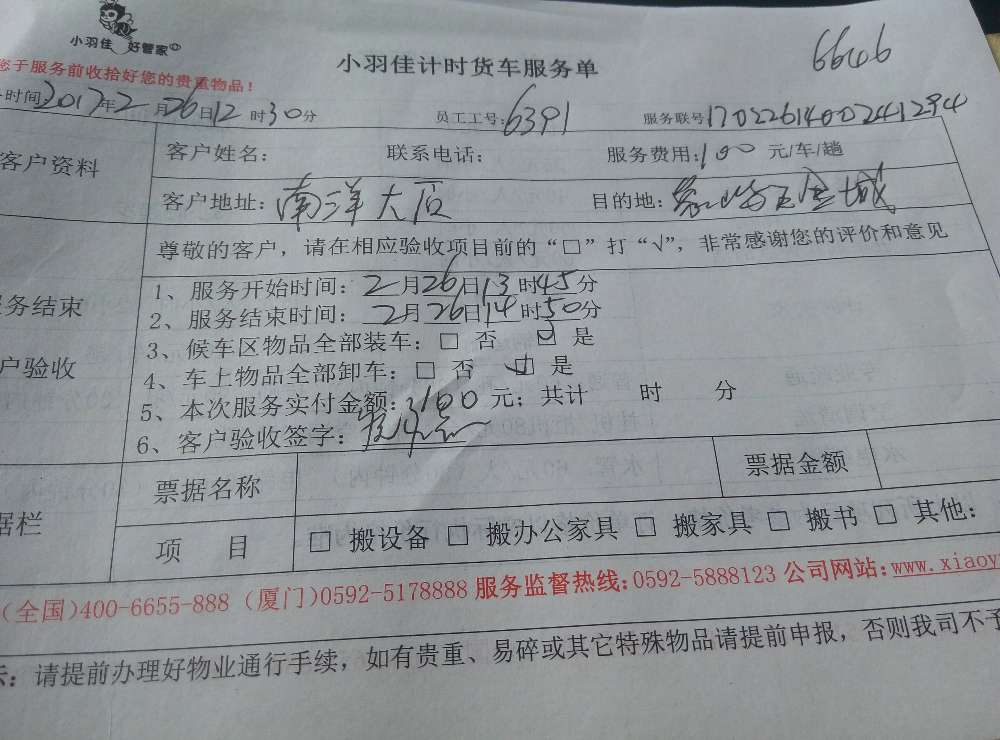 小羽佳 好管家
小羽佳计时货车服务单
6606
您于服务前收拾好您的贵重物品!
时间:2017年2月26日12时30分 员工工号:6391 服务联号170226140024 1294
客户资料 客户姓名: 联系电话: 服务费用:100元/车/趟
客户地址:南洋大 目的地: 城
尊敬的客户，请在相应验收项目前的“□”打“√”，非常感谢您的评价和意见
务结束
1、服务开始时间:2月26日13时45分
2、服务结束时间:2月26日14时50分
户验收
3、候车区物品全部装车:□ 否 ☑ 是
4、车上物品全部卸车:□ 否 ☑ 是
5、本次服务实付金额:100元;共计 时 分
6、客户验收签字:
据栏 票据名称 票据金额
项 目 □ 搬设备 □ 搬办公家具 □ 搬家具 □ 搬书 □ 其他:
(全国)400-6655-888 (厦门)0592-5178888 服务监督热线:0592-5888123 公司网站:www.xiaoy
示: 请提前办理好物业通行手续，如有贵重、易碎或其它特殊物品请提前申报，否则我司不予